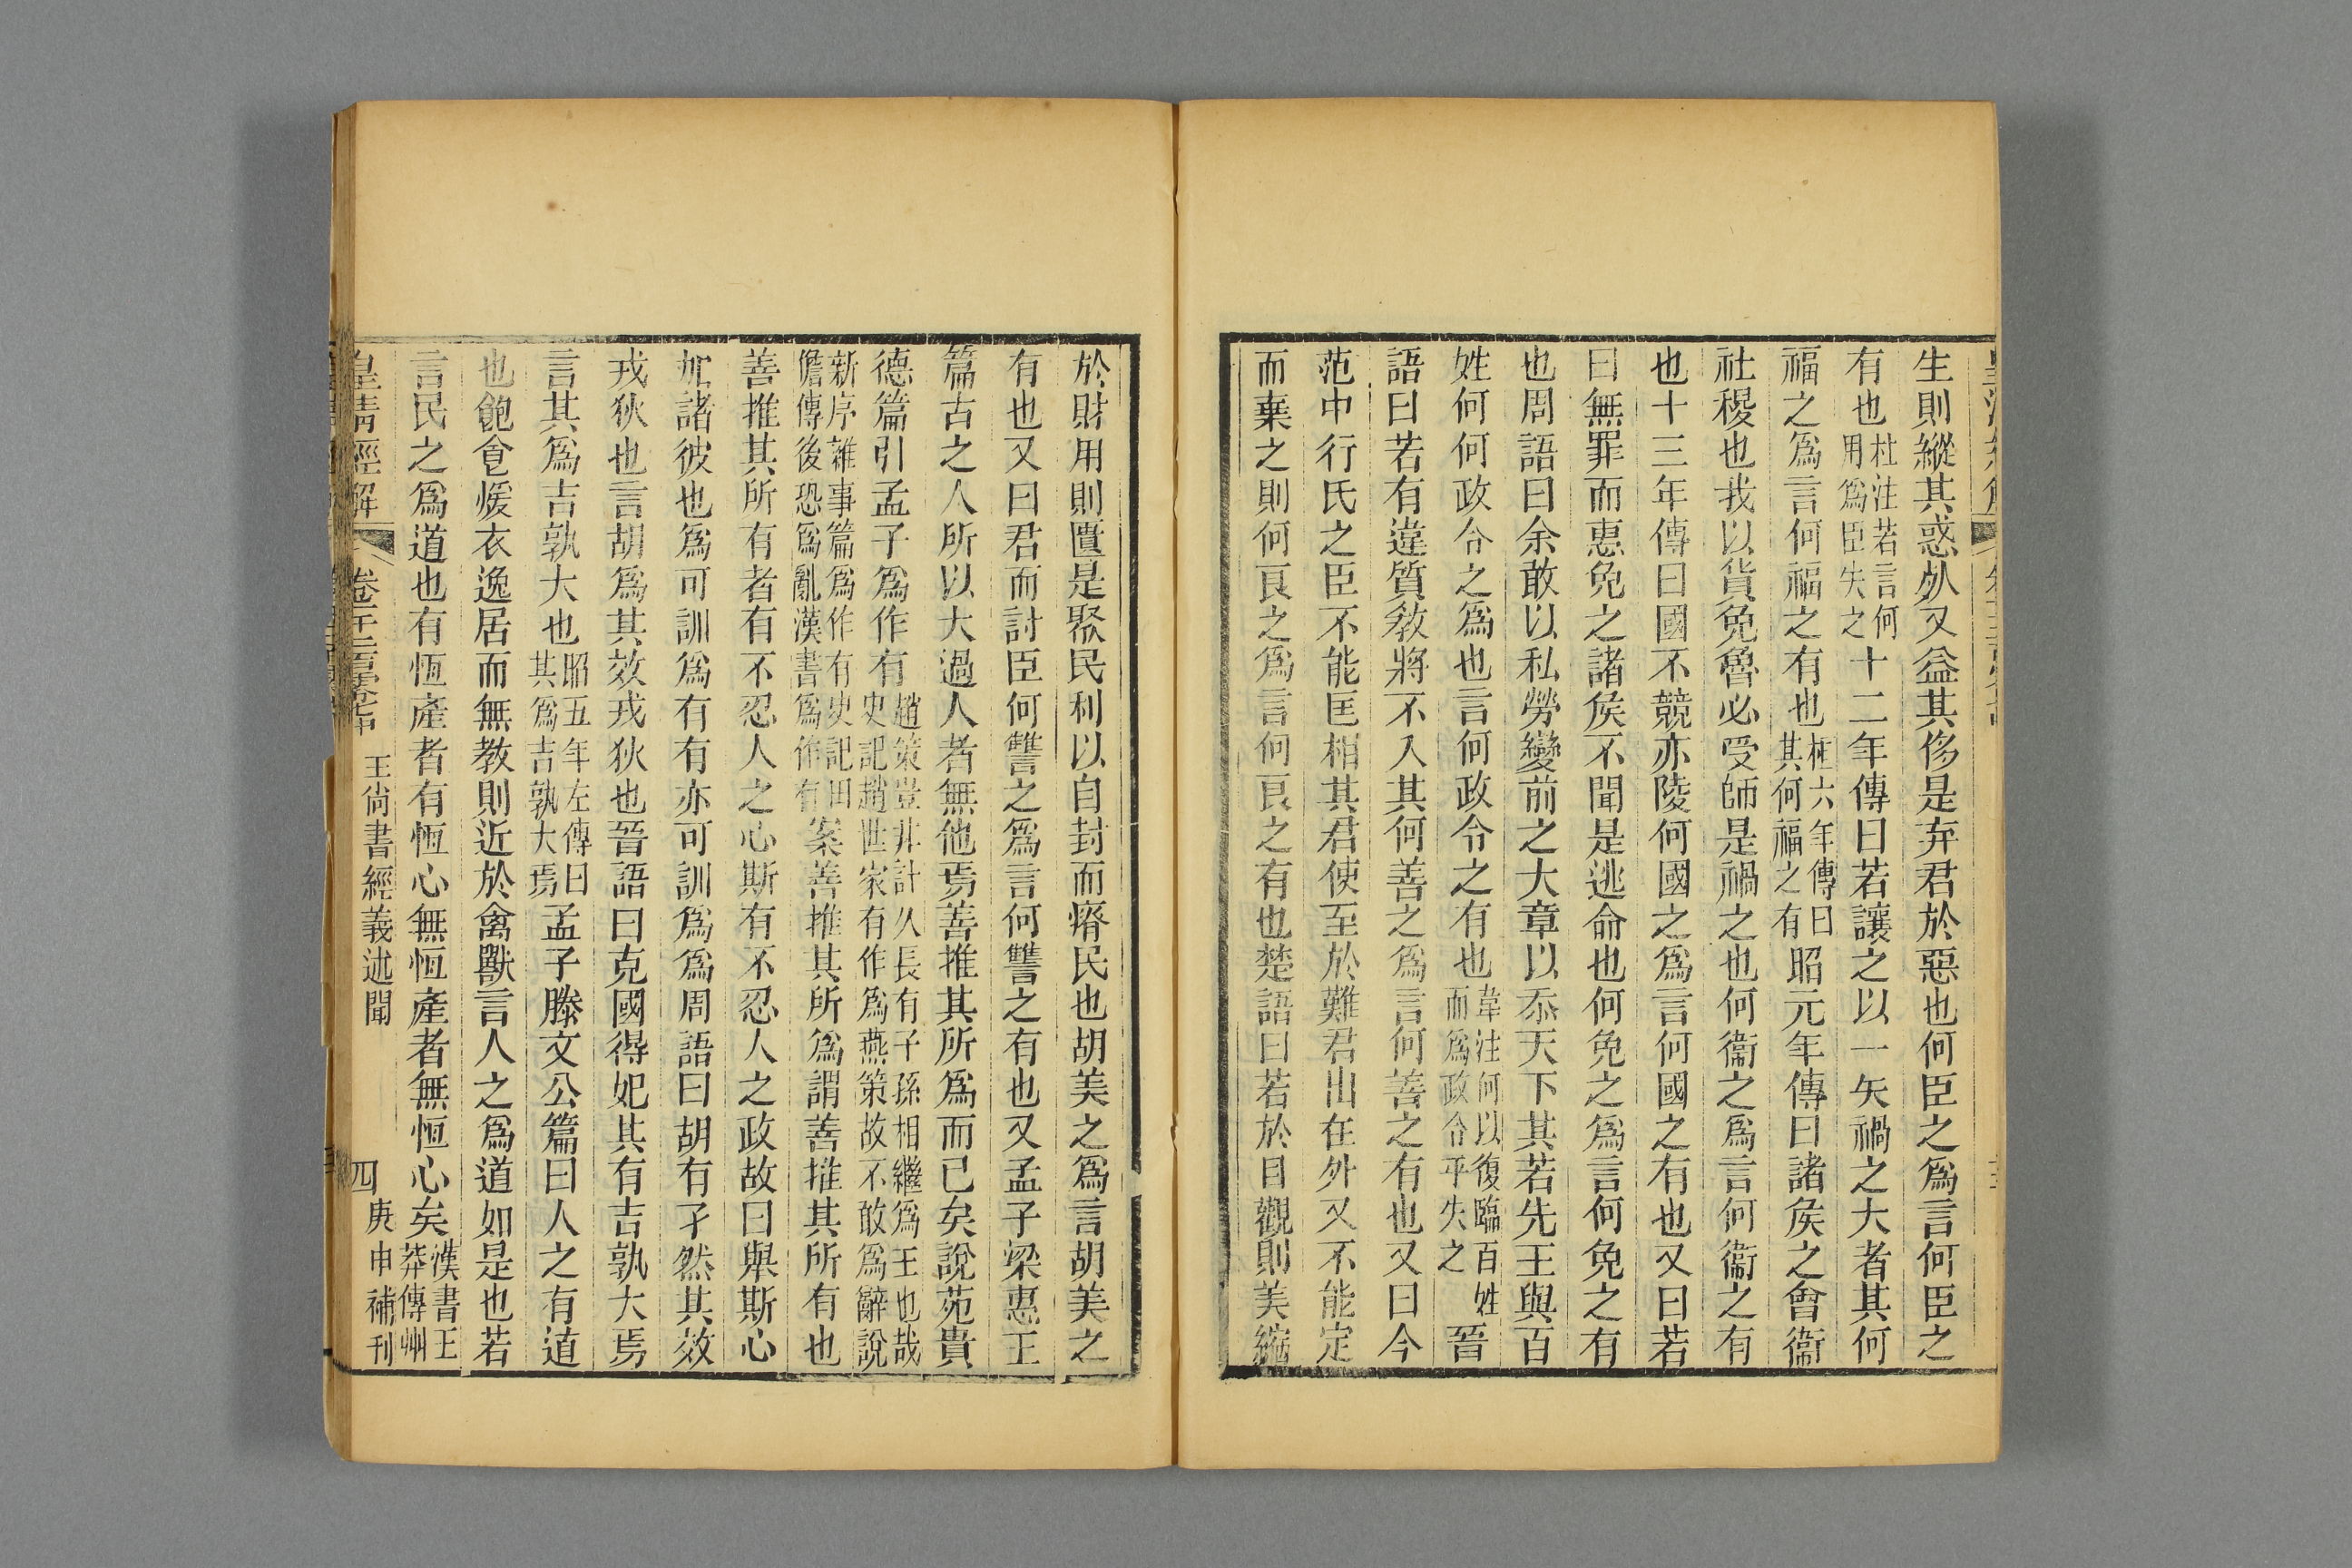 生則縱其惑死又益其侈是弃君於惡也何臣之爲言何臣之
有也杜注若言何用爲臣失之十二年傳曰若讓之以一矢禍之大者其何
福之爲言何福之有也桓六年傳曰其何福之有昭元年傳曰諸侯之會衞
社稷也我以貨免魯必受師是禍之也何衞之爲言何衞之有
也十三年傳曰國不競亦陵何國之爲言何國之有也又曰若
曰無罪而惠免之諸侯不聞是逃命也何免之爲言何免之有
也周語曰余敢以私勞變前之大章以忝天下其若先王與百
姓何何政令之爲也言何政令之有也韋注何以復臨百姓而爲政令乎失之晉
語曰若有違質敎將不入其何善之爲言何善之有也又曰今
范中行氏之臣不能匡相其君使至於難君出在外又不能定
而棄之則何良之爲言何良之有也楚語曰若於目觀則美縮
於財用則匱是聚民利以自封而瘠民也胡美之爲言胡美之
有也又曰君而討臣何讐之爲言何讐之有也又孟子梁惠王
篇古之人所以大過人者無他焉善推其所爲而已矣說苑貴
德篇引孟子爲作有趙策豈非計久長有子孫相繼爲王也哉史記趙世家有作爲燕策故不敢爲辭說
新序雜事篇爲作有史記田儋傳後恐爲亂漢書爲作有案善推其所爲謂善推其所有也
善推其所有者有不忍人之心斯有不忍人之政故曰舉斯心
加諸彼也爲可訓爲有有亦可訓爲爲周語曰胡有孑然其效
戎狄也言胡爲其效戎狄也晉語曰克國得妃其有吉孰大焉
言其爲吉孰大也昭五年左傳曰其爲吉孰大焉孟子滕文公篇曰人之有道
也飽食煖衣逸居而無教則近於禽獸言人之爲道如是也若
言民之爲道也有恆產者有恆心無恆產者無恆心矣漢書王莽傳州
皇清經解 卷千二百零七中 王尚書經義述聞 四 庚申補刊